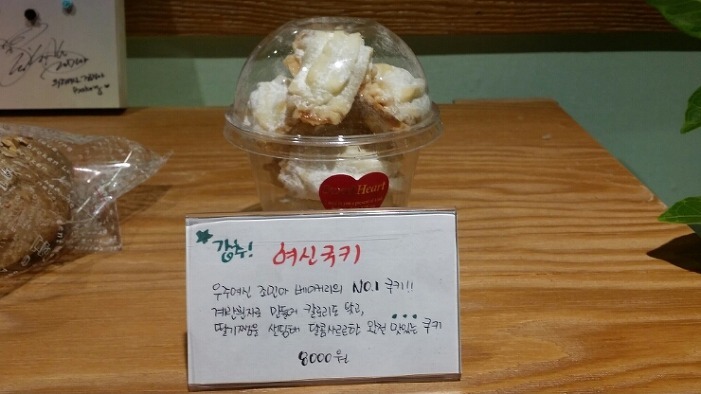 강추! 여신쿡키
우주여신 조민아 베이커리의 NO.1 쿠키!!
계란흰자로 만들어 칼로리도 낮고,
딸기쨈을 샌딩해 달콤사르르한 완전 맛있는 쿠키
8000원
Heart